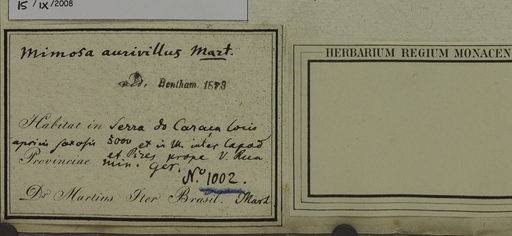 15/IX/2008
Mimosa aurivillus Mart.
vid. Bentham. 1873
HERBARIUM REGIUM MONACEN
Habitat in Serra do Caraça locis
apricis saxosis 5000 et in M. inter Capao
Provinciae et Pires prope V. Rica
min. Ger.
No 1002.
Dr Martius Iter Brasil. Mart